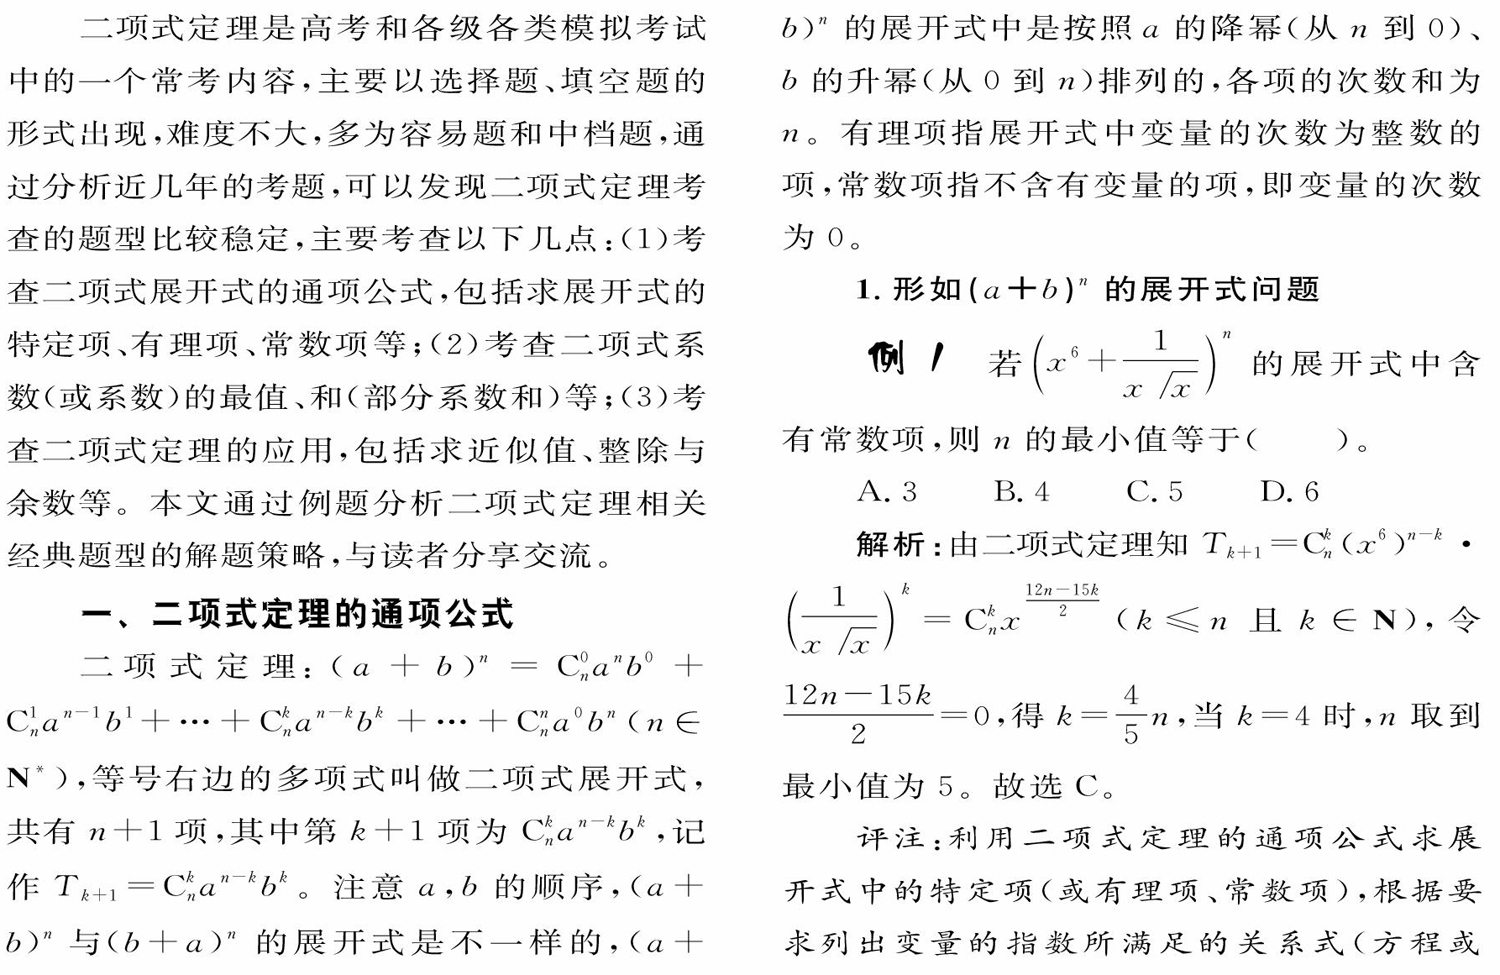 二项式定理是高考和各级各类模拟考试
中的一个常考内容,主要以选择题、填空题的
形式出现,难度不大,多为容易题和中档题,通
过分析近几年的考题,可以发现二项式定理考
查的题型比较稳定,主要考查以下几点:(1)考
查二项式展开式的通项公式,包括求展开式的
特定项、有理项、常数项等;(2)考查二项式系
数(或系数)的最值、和(部分系数和)等;(3)考
查二项式定理的应用,包括求近似值、整除与
余数等。本文通过例题分析二项式定理相关
经典题型的解题策略,与读者分享交流。
一、二项式定理的通项公式
二项式定理: $(a+b)^n = C_n^0 a^n b^0 +$
$C_n^1 a^{n-1} b^1 + \cdots + C_n^k a^{n-k} b^k + \cdots + C_n^n a^0 b^n (n \in$
$\mathbf{N}^*)$,等号右边的多项式叫做二项式展开式,
共有 $n+1$ 项,其中第 $k+1$ 项为 $C_n^k a^{n-k} b^k$,记
作 $T_{k+1} = C_n^k a^{n-k} b^k$。注意 $a,b$ 的顺序,$(a+$
$b)^n$ 与$(b+a)^n$ 的展开式是不一样的,$(a+$
$b)^n$ 的展开式中是按照 $a$ 的降幂(从 $n$ 到 0)、
$b$ 的升幂(从 0 到 $n$)排列的,各项的次数和为
$n$。有理项指展开式中变量的次数为整数的
项,常数项指不含有变量的项,即变量的次数
为 0。
1. 形如$(a+b)^n$ 的展开式问题
例 1 若$\left(x^6+\frac{1}{x\sqrt{x}}\right)^n$ 的展开式中含
有常数项,则 $n$ 的最小值等于( )。
A. 3 B. 4 C. 5 D. 6
解析:由二项式定理知 $T_{k+1} = C_n^k (x^6)^{n-k} \cdot$
$\left(\frac{1}{x\sqrt{x}}\right)^k = C_n^k x^{\frac{12n-15k}{2}}$ $(k \leqslant n$ 且 $k \in \mathbf{N})$,令
$\frac{12n-15k}{2}=0$,得 $k=\frac{4}{5}n$,当 $k=4$ 时,$n$ 取到
最小值为 5。故选 C。
评注:利用二项式定理的通项公式求展
开式中的特定项(或有理项、常数项),根据要
求列出变量的指数所满足的关系式(方程或